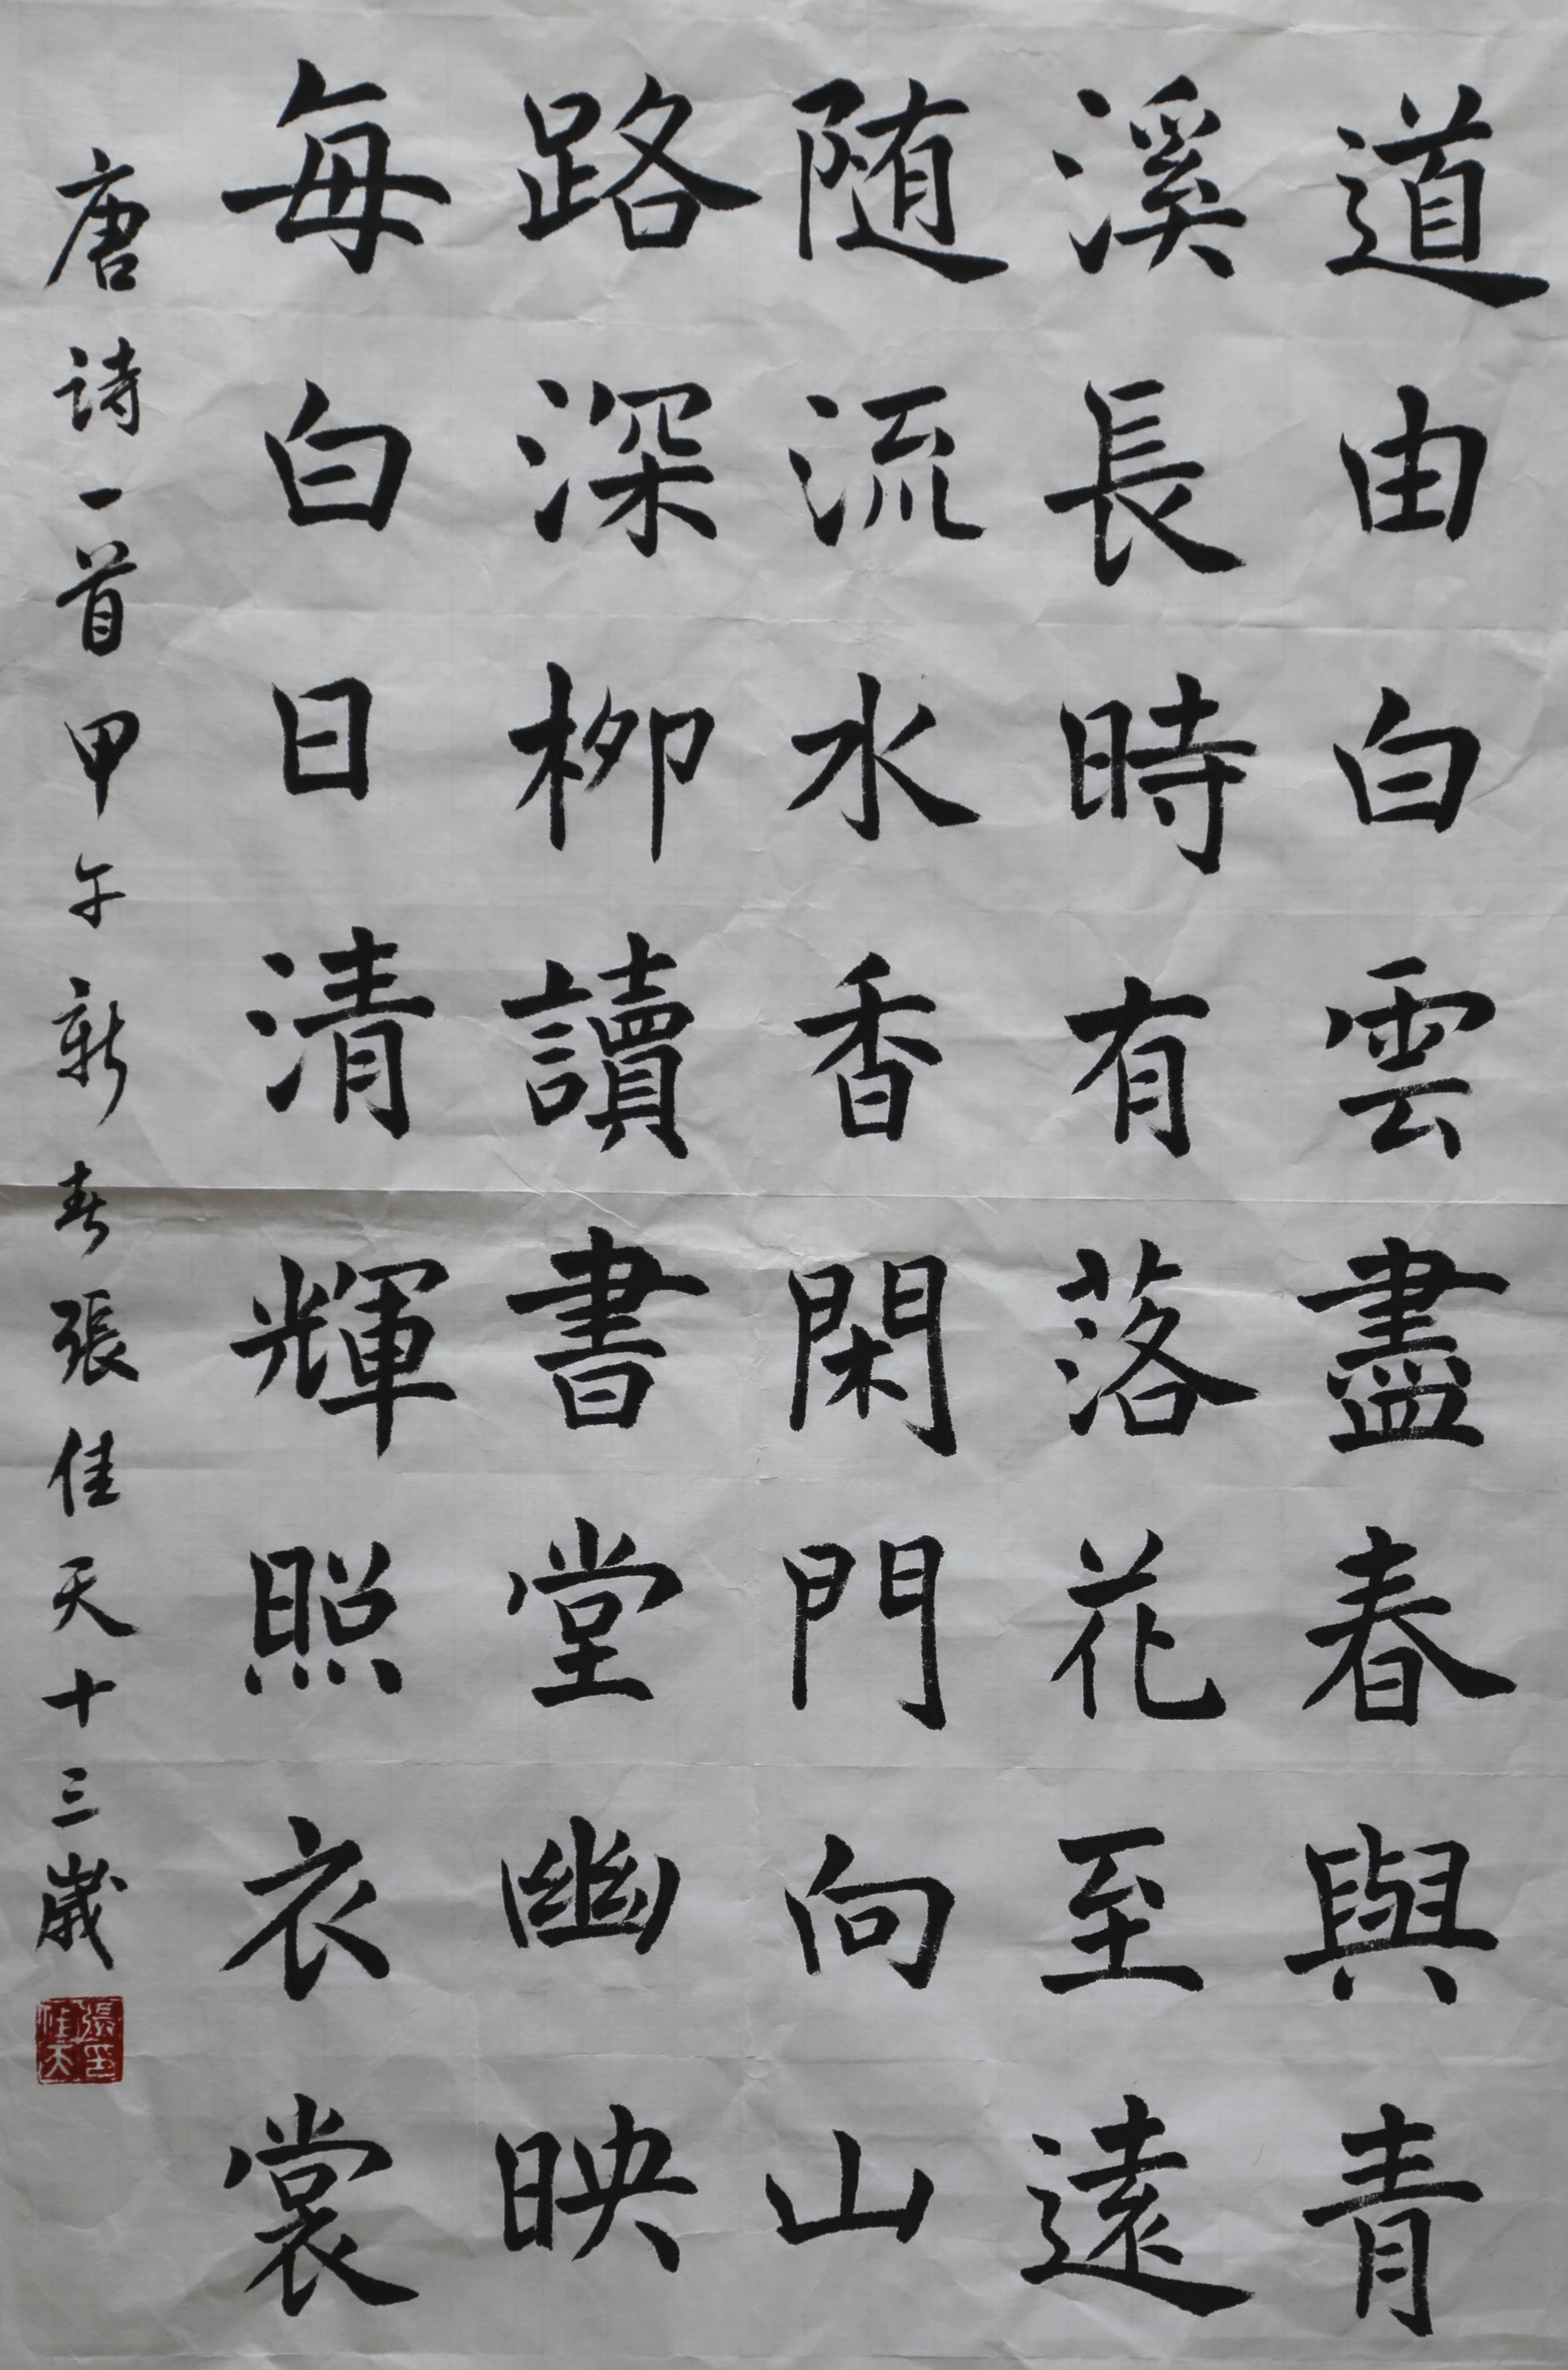 道由白雲盡春與青
溪長時有落花至遠
随流水香閑門向山
路深柳讀書堂幽映
每白日清輝照衣裳
唐诗一首甲午新春張佳天十三歲
張印佳天